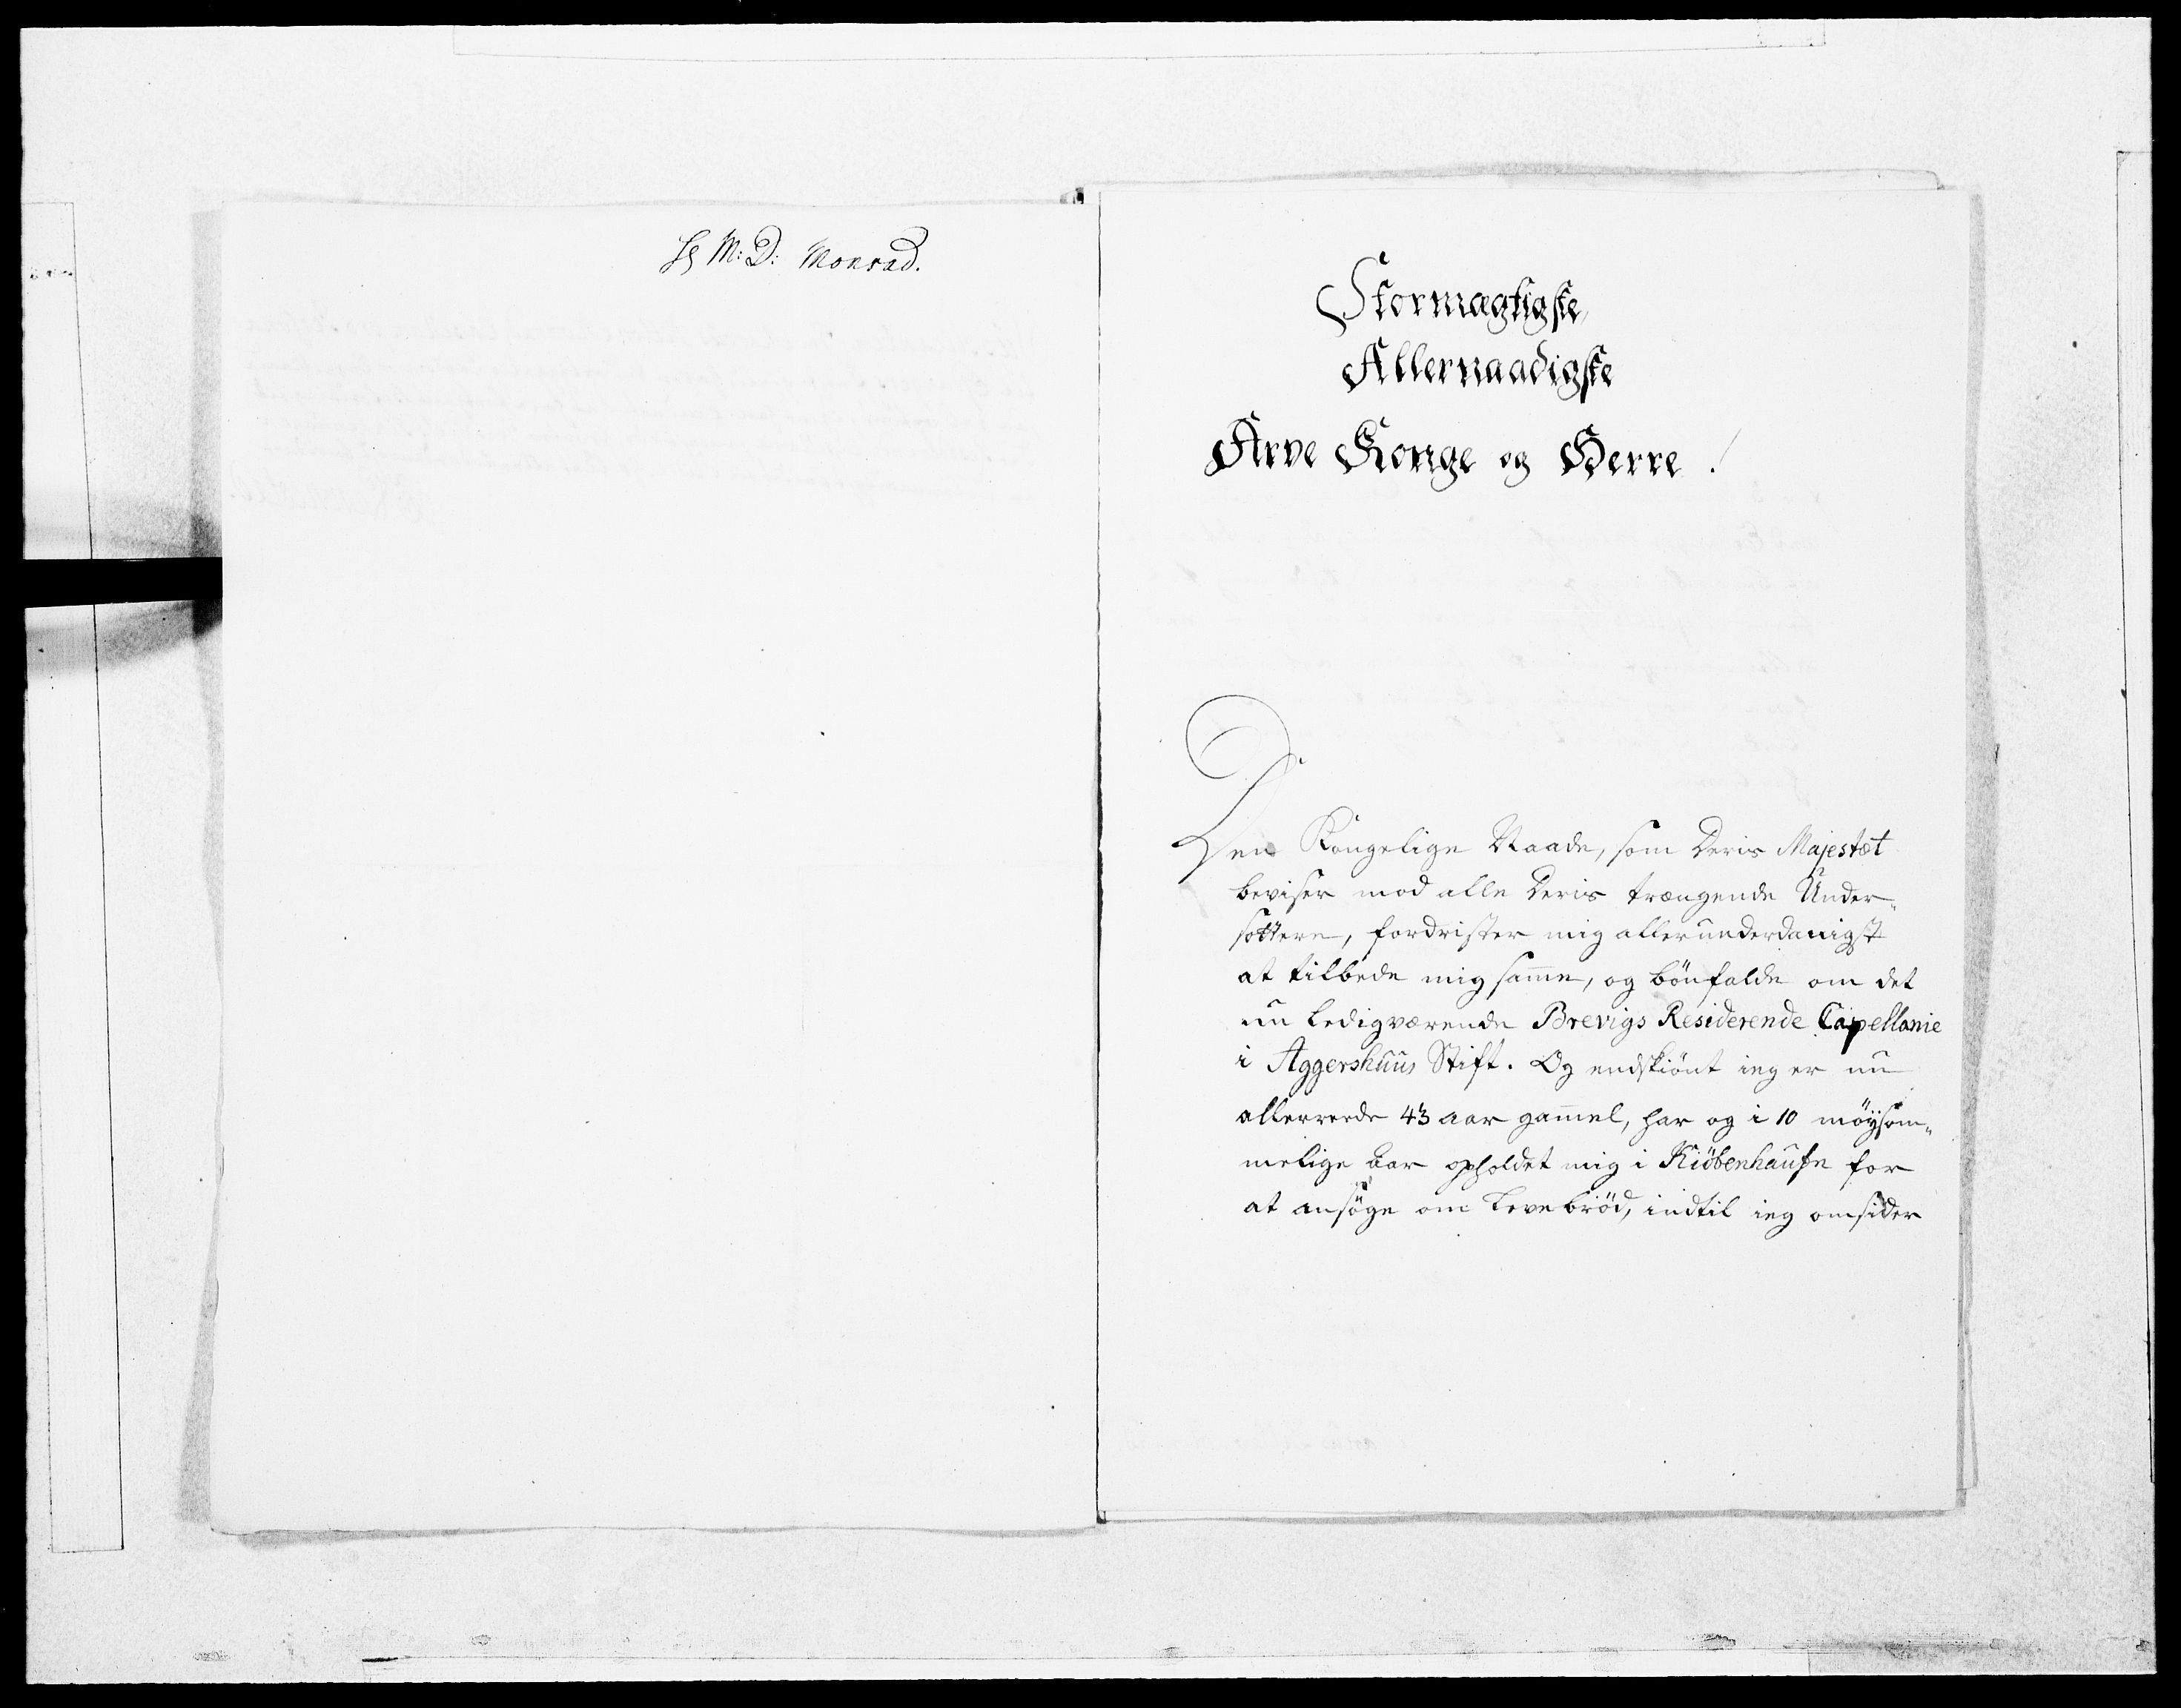 M: D: Monrad.
Stormægtigste
Allernaadigste
Arve Konge og Herre!
Den Kongelige Naade, som Deris Majestæt
beviser mod alle Deris trængende Under-
sottere, fordrister mig allerunderdanigst
at tilbede mig samme, og bönfalde om det
nu ledigværende Brevigs Residerende Capellanie
i Aggershuus Stift. Og endskiönt ieg er nu
allerrede 43 aar gammel, har og i 10 möysom-
melige aar opholdet mig i Kiöbenhaufn for
at ansöge om Levebröd, indtil ieg omsider